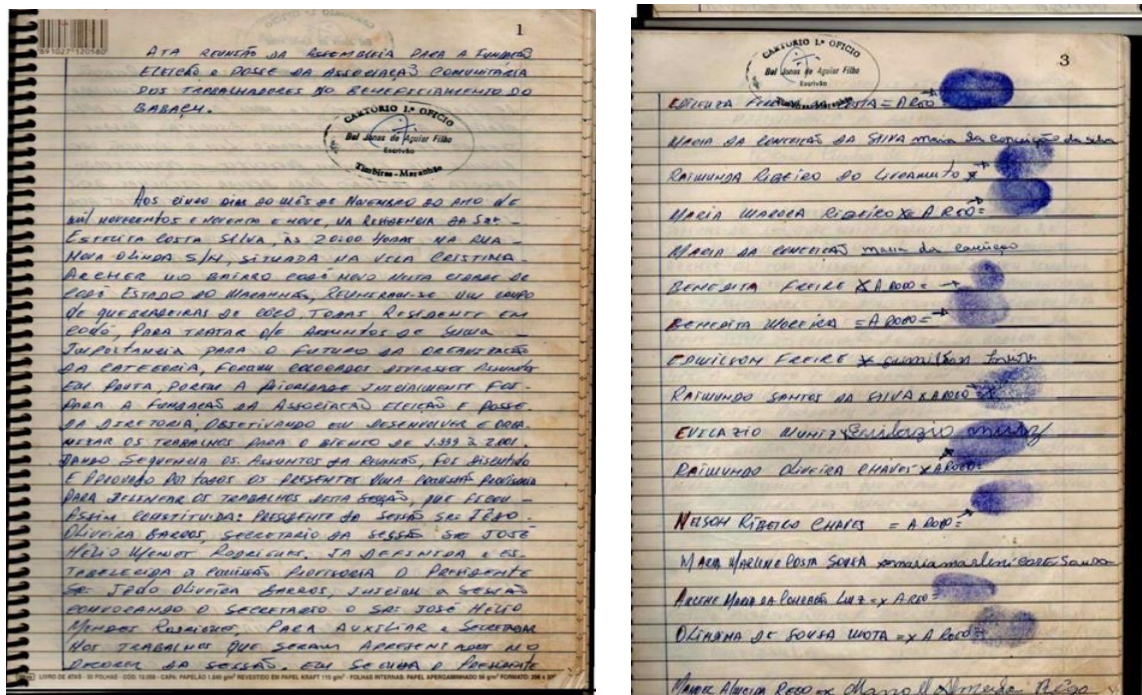 1
891027 120580
ATA REUNIÃO DA ASSEMBLEIA PARA A FUNDAÇÃO
ELEIÇÃO e POSSE DA ASSOCIAÇÃO COMUNITÁRIA
DOS TRABALHADORES NO BENEFICIAMENTO DO
BABAÇU.
CARTÓRIO 1.º OFICIO
Bel Jonas de Aguiar Filho
Escrivão
Timbiras - Maranhão
AOS CINCO DIAS DO MÊS DE NOVEMBRO DO ANO DE
MIL NOVECENTOS E NOVENTA E NOVE, NA RESIDENCIA DA SRª
ESTELITA COSTA SILVA, ÀS 20:00 HORAS NA RUA
NOVA OLINDA S/N, SITUADA NA VILA CRISTINA
ARCHER NO BAIRRO CODÓ NOVO NESTA CIDADE DE
CODÓ ESTADO DO MARANHÃO, REUNIRAM-SE UM GRUPO
DE QUEBRADEIRAS DE COCO TODAS RESIDENTE EM
CODÓ, PARA TRATAR DE ASSUNTOS DE SUMA
IMPORTANCIA PARA O FUTURO DA ORGANIZAÇÃO
DA CATEGORIA, FORAM COLOCADOS DIVERSOS ASSUNTOS
EM PAUTA, POREM A PRIORIDADE INICIALMENTE FOI
PARA A FUNDAÇÃO DA ASSOCIAÇÃO ELEIÇÃO E POSSE
DA DIRETORIA, OBJETIVANDO EM DESENVOLVER E ORGA
NIZAR OS TRABALHOS PARA O BIENIO DE 1.999 à 2.001.
DANDO SEQUENCIA OS ASSUNTOS DA REUNIÃO, FOI DISCUTIDO
E APROVADO POR TODOS OS PRESENTES UMA COMISSÃO PROVISORIA
PARA DELINEAR OS TRABALHOS DESTA SESSÃO, QUE FICOU
ASSIM CONSTITUIDA: PRESIDENTE DA SESSÃO SR:
OLIVEIRA BARROS, SECRETARIO DA SESSÃO SR JOSÉ
HÉLIO MENDES RODRIGUES. JA DEFINIDA e ES-
TABELECIDA a COMISSÃO PROVISORIA O PRESIDENTE
SR: OLIVEIRA BARROS, INICIOU a SESSÃO
CONVOCANDO O SECRETARIO O SR: JOSÉ HÉLIO
MENDES RODRIGUES, PARA AUXILIAR e SECRETARIAR
NOS TRABALHOS QUE SERAM APRESENTADOS NO
DECORER DA SESSÃO. EM SEGUIDA O PRESIDENTE
LIVRO DE ATAS - 50 FOLHAS - CÓD. - CAPA: PAPELÃO 1.040 g/m² REVESTIDO EM PAPEL KRAFT 110 g/m² - FOLHAS INTERNAS: PAPEL APERGAMINHADO 56 g/m² FORMATO:
3
CARTÓRIO 1.º OFICIO
Bel Jonas de Aguiar Filho
Escrivão
COSTA = A ROGO
MARIA DA CONCEIÇÃO DA SILVA maria da conceição da silva
RAIMUNDA RIBEIRO DO LIVRAMENTO X
MARIA RIBEIRO X = A ROGO =
MARIA DA CONCEIÇÃO maria da conceição
BENEDITA FREIRE X A ROGO =
BENEDITA MOREIRA = A ROGO =
EDMILSON FREIRE X
RAIMUNDO SANTOS DA SILVA X A ROGO = X
EVILAZIO MUNIZ Evilazio muniz
RAIMUNDO OLIVEIRA CHAVES X A ROGO =
NELSON RIBEIRO CHAVES = A ROGO =
MARIA MARLENE COSTA SOUSA
MARIA DA CONCEIÇÃO LUZ = X A ROGO =
OLINDINA DE SOUSA MOTA = X A ROGO =
MANOEL ALMEIDA REGO = X Manoel Almeida Rêgo